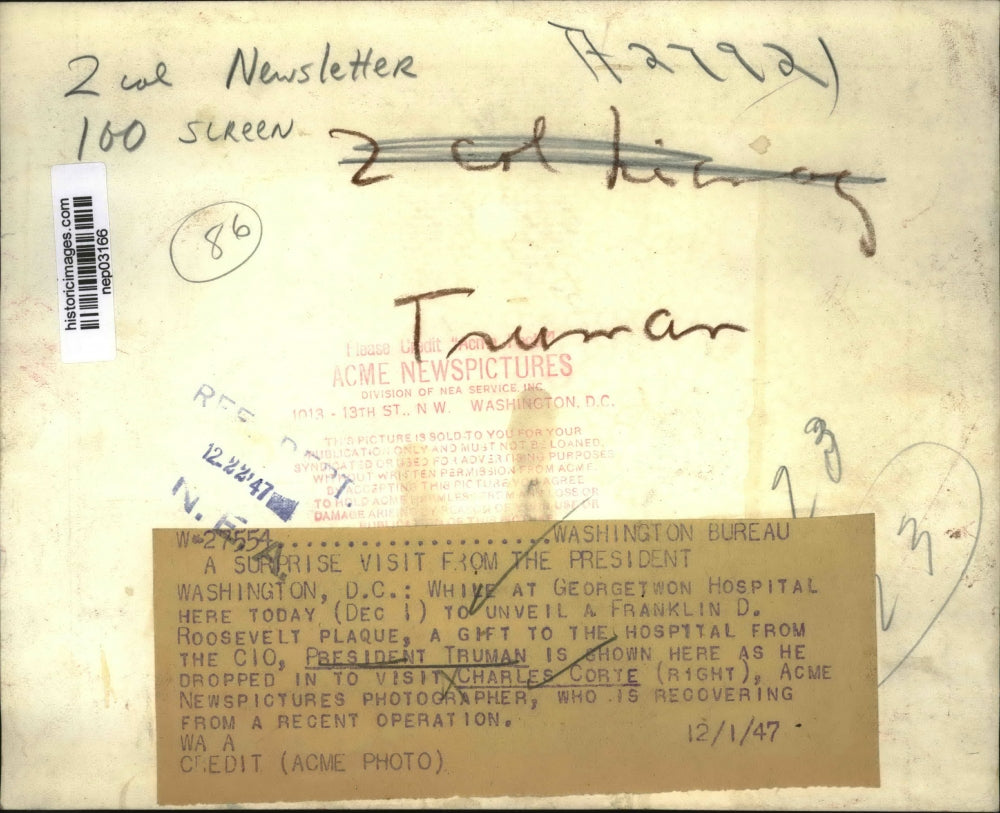 2 col Newsletter
100 SCREEN
2 col
historicimages.com
nep03166
86
Truman
Please Credit "Acme
ACME NEWSPICTURES
DIVISION OF NEA SERVICE, INC.
1013 - 13TH ST., N.W. WASHINGTON, D.C.
THIS PICTURE IS SOLD TO YOU FOR YOUR
PUBLICATION ONLY AND MUST NOT BE LOANED,
SYNDICATED OR USED FOR ADVERTISING PURPOSES
WITHOUT WRITTEN PERMISSION FROM ACME.
BY ACCEPTING THIS PICTURE YOU AGREE
TO HOLD ACME HARMLESS FROM ANY LOSE OR
DAMAGE ARISING BY REASON OF USE OR
12.22'47
N.E.A.
23
23
W-27554..............................WASHINGTON BUREAU
A SURPRISE VISIT FROM THE PRESIDENT
WASHINGTON, D.C.: WHILE AT GEORGETWON HOSPITAL
HERE TODAY (DEC 1) TO UNVEIL A FRANKLIN D.
ROOSEVELT PLAQUE, A GIFT TO THE HOSPITAL FROM
THE CIO, PRESIDENT TRUMAN IS SHOWN HERE AS HE
DROPPED IN TO VISIT CHARLES CORTE (RIGHT), ACME
NEWSPICTURES PHOTOGRAPHER, WHO IS RECOVERING
FROM A RECENT OPERATION.
WA A 12/1/47
CREDIT (ACME PHOTO)